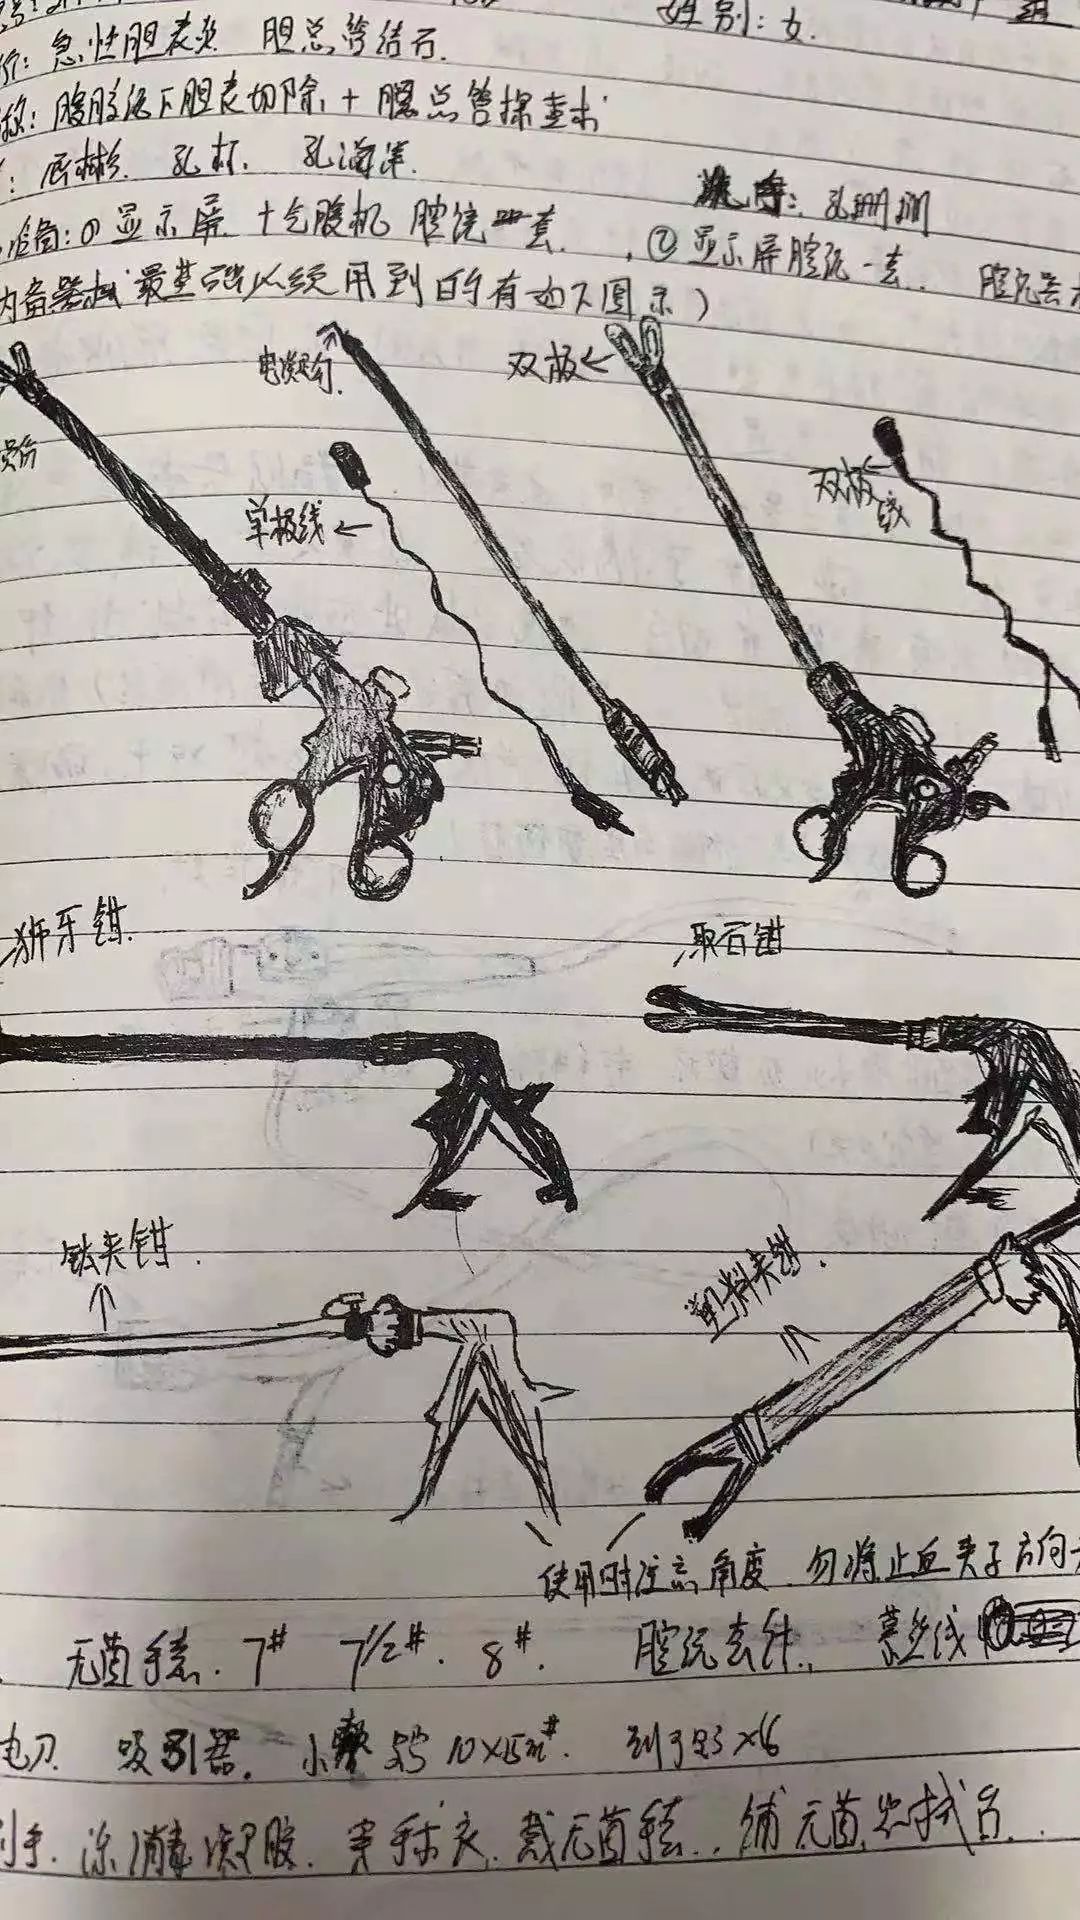 性别：女.
急性胆囊炎 胆总管结石.
腹腔镜下胆囊切除 + 胆总管探查术
孔杯. 孔海洋.
①显示屏 + 气腹机 腔镜一套. ，②显示屏腔镜一套..
器械最基础必须用到的有如下图示）
电凝勾.
双极←
单极线←
双极线
狮牙钳.
取石钳
钛夹钳.
塑料夹钳.
使用时注意角度. 勿将止血夹子方向
无菌手套. 7# 7 1/2#. 8#. 腔镜套针. 慕丝线
电刀 吸引器. 小 10×15
刷手. 涂消毒凝胶. 穿手术衣. 戴无菌手套.. 铺无菌器械台..